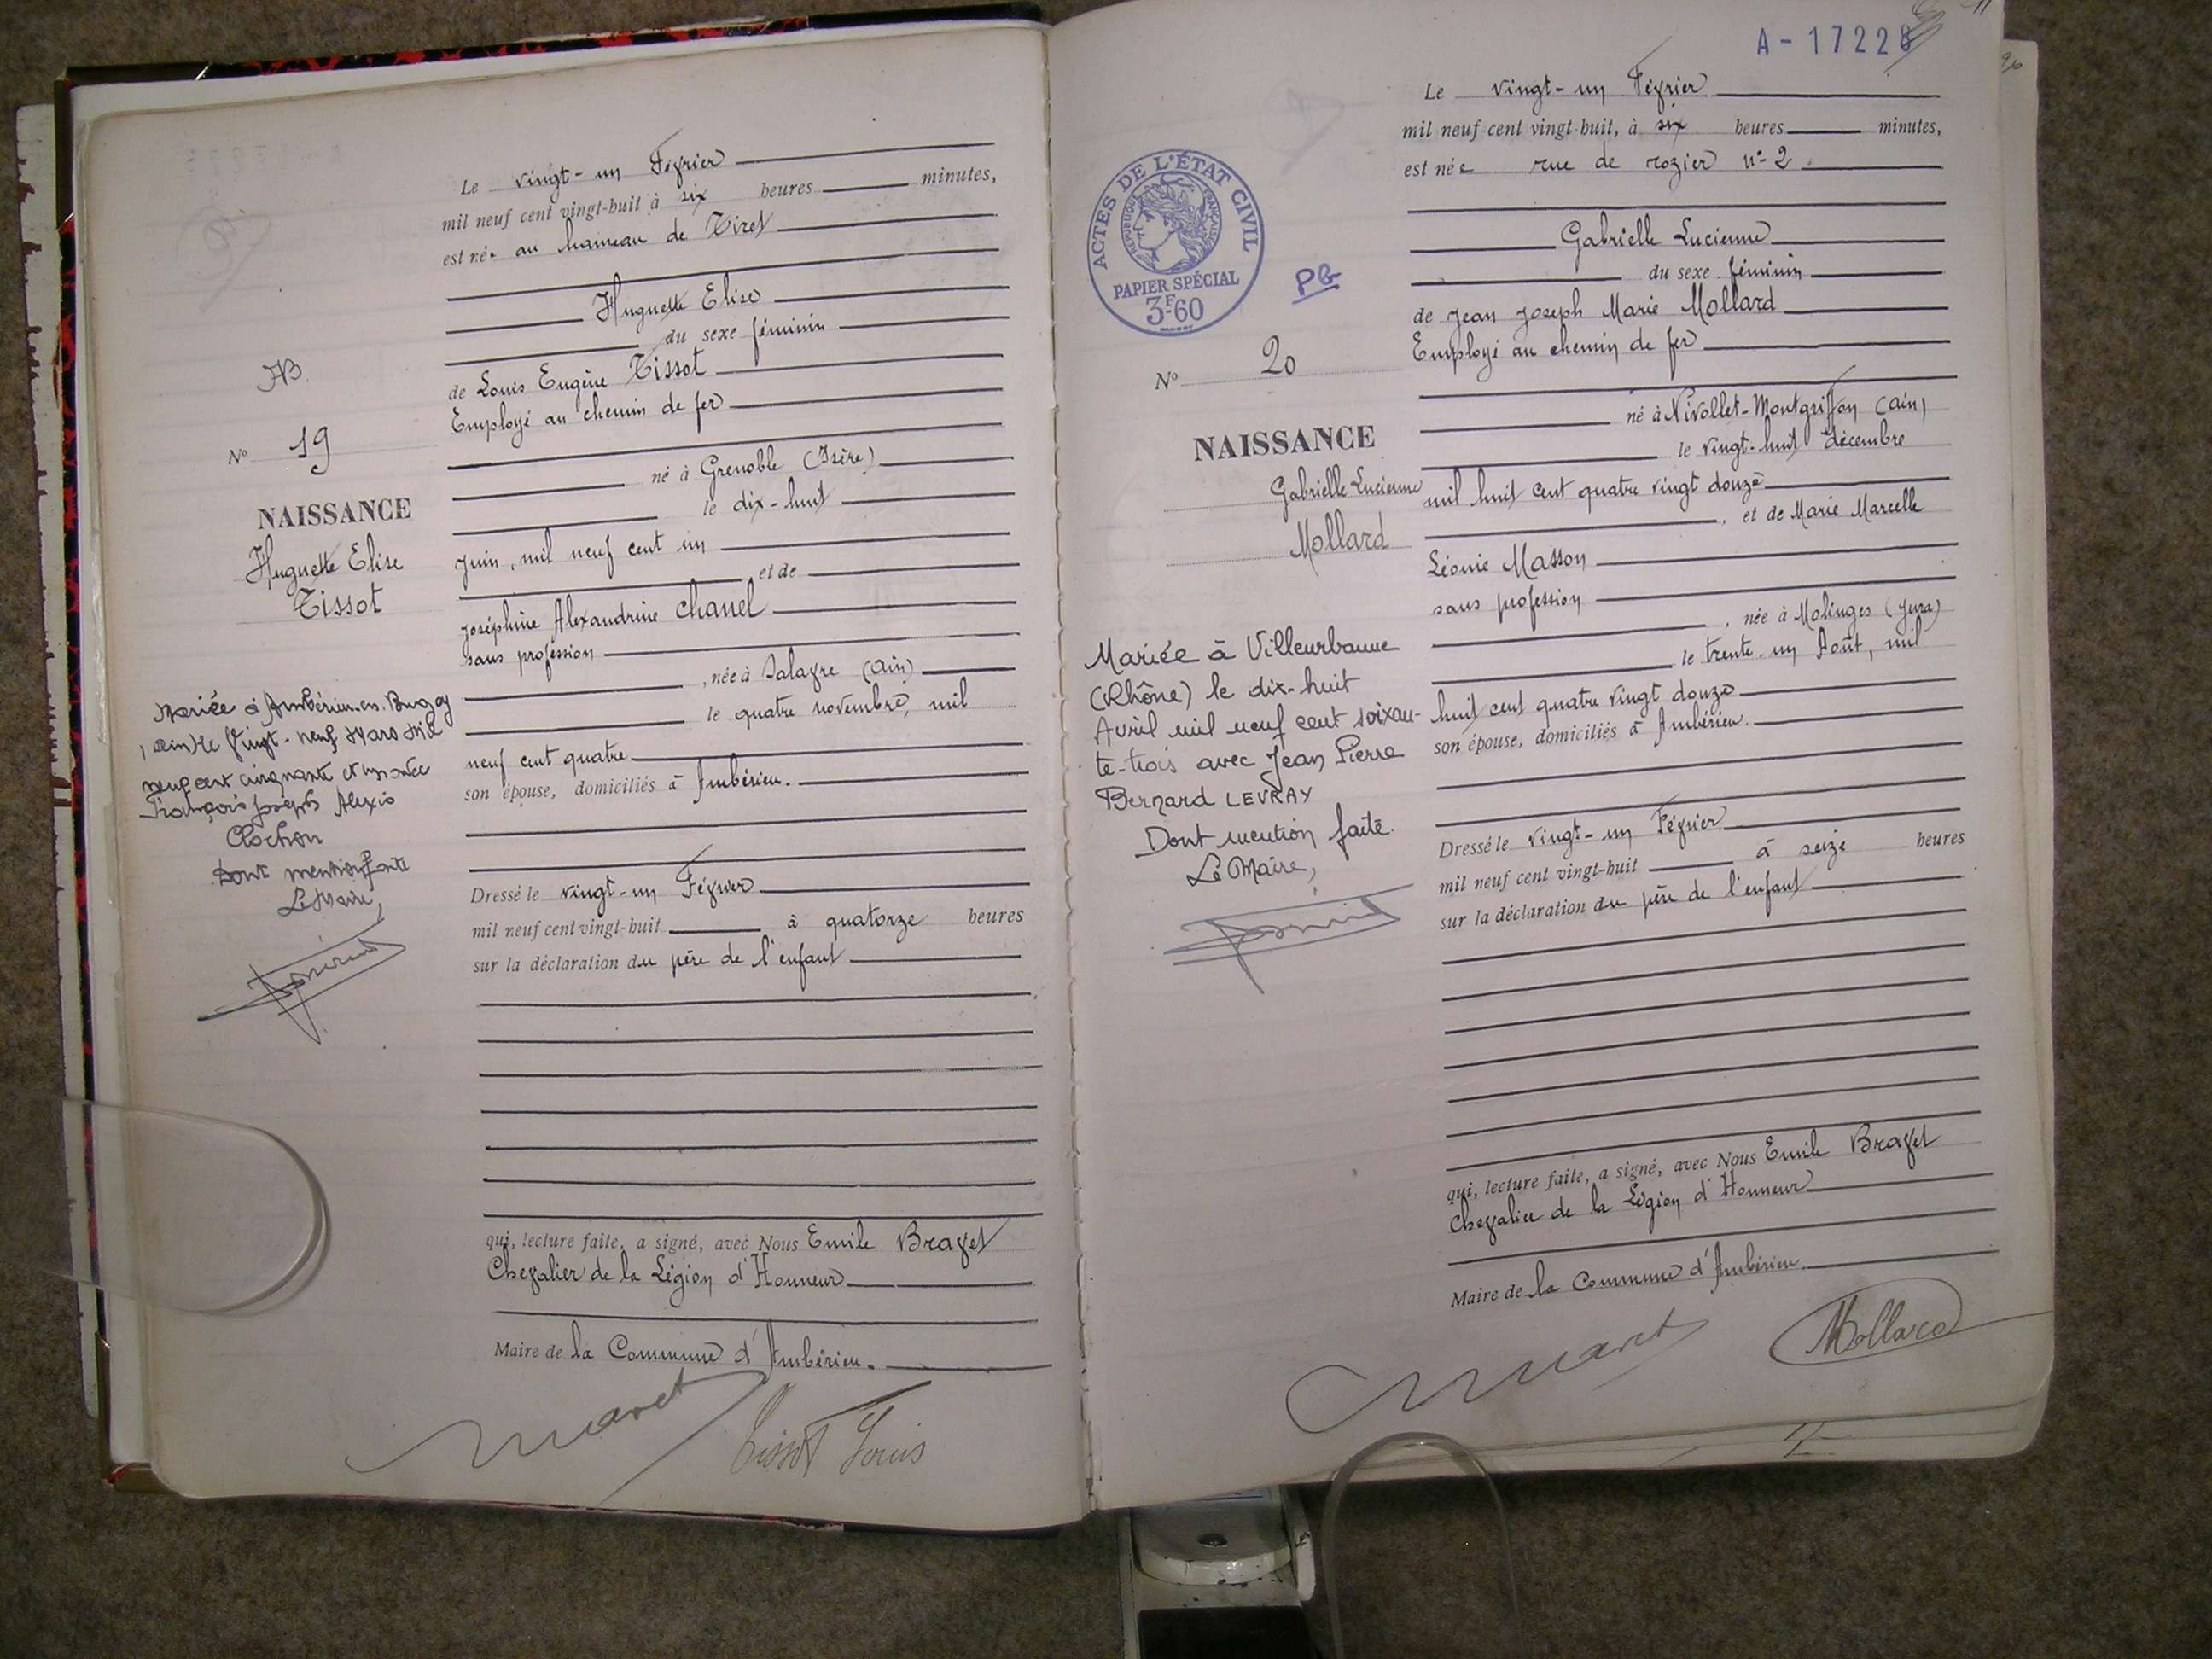 Le vingt-un Février
mil neuf cent vingt-huit à six heures minutes,
est née au hameau de Tiret
Huguette Elise
du sexe féminin
de Louis Eugène Tissot
Employé au chemin de fer
né à Grenoble (Isère)
le dix-huit
Juin, mil neuf cent un
et de
Joséphine Alexandrine Chanel
sans profession
, née à Salavre (Ain)
le quatre novembre, mil
neuf cent quatre
son épouse, domiciliés à Ambérieu.
Dressé le vingt-un Février
mil neuf cent vingt-huit à quatorze heures
sur la déclaration du père de l'enfant
qui, lecture faite, a signé, avec Nous Emile Bravet
Chevalier de la Légion d'Honneur
Maire de la Commune d'Ambérieu.
Tissot Louis
AB.
N° 19
NAISSANCE
Huguette Elise
Tissot
Mariée à Ambérieu-en-Bugey
(Ain) le Vingt-neuf Mars Mil
neuf cent cinquante et un avec
François Joseph Alexis
Clochon
Dont mention faite
Le Maire,
A-17228
Le vingt-un Février
mil neuf cent vingt-huit, à six heures minutes,
est née rue de rozier n°-2.
Gabrielle Lucienne
du sexe féminin
de Jean Joseph Marie Mollard
Employé au chemin de fer
né à Nivollet-Montgriffon (Ain)
le vingt-huit décembre
mil huit cent quatre vingt douze
, et de Marie Marcelle
Léonie Masson
sans profession
, née à Molinges (Jura)
le trente-un Août, mil
huit cent quatre vingt douze
son épouse, domiciliés à Ambérieu.
Dressé le vingt-un Février
mil neuf cent vingt-huit à seize heures
sur la déclaration du père de l'enfant
qui, lecture faite, a signé, avec Nous Emile Bravet
Chevalier de la Légion d'Honneur
Maire de la Commune d'Ambérieu.
Mollard
ACTES DE L'ÉTAT CIVIL
RÉPUBLIQUE FRANÇAISE
PAPIER SPÉCIAL
3F60
PB
N° 20
NAISSANCE
Gabrielle Lucienne
Mollard
Mariée à Villeurbanne
(Rhône) le dix-huit
Avril mil neuf cent soixan-
te-trois avec Jean Pierre
Bernard LEVRAY
Dont mention faite.
Le Maire,